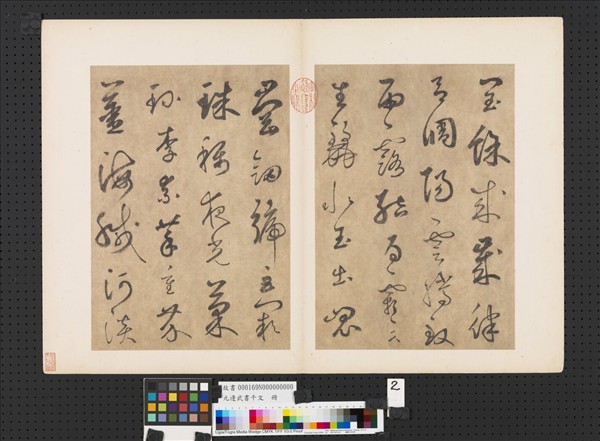 閏餘成歲律
呂調陽雲騰致
雨露結為霜金
生麗水玉出崑
崗劍號巨闕
珠稱夜光菓
珍李柰菜重芥
薑海鹹河淡
故書 000169N000000000
元邊武書千文 冊
2